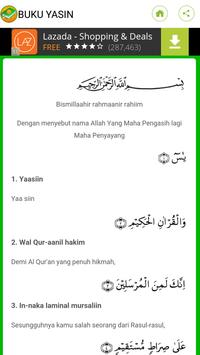 BUKU YASIN
Lazada - Shopping & Deals
FREE ★★★★☆ (287,463)
بِسْمِ اللَّهِ الرَّحْمَٰنِ الرَّحِيمِ
Bismillaahir rahmaanir rahiim
Dengan menyebut nama Allah Yang Maha Pengasih lagi
Maha Penyayang
يسٓ ۝١
1. Yaasiin
Yaa siin
وَالْقُرْآنِ الْحَكِيْمِ ۝٢
2. Wal Qur-aanil hakim
Demi Al Qur'an yang penuh hikmah,
اِنَّكَ لَمِنَ الْمُرْسَلِيْنَ ۝٣
3. In-naka laminal mursaliin
Sesungguhnya kamu salah seorang dari Rasul-rasul,
عَلٰى صِرَاطٍ مُّسْتَقِيْمٍ ۝٤